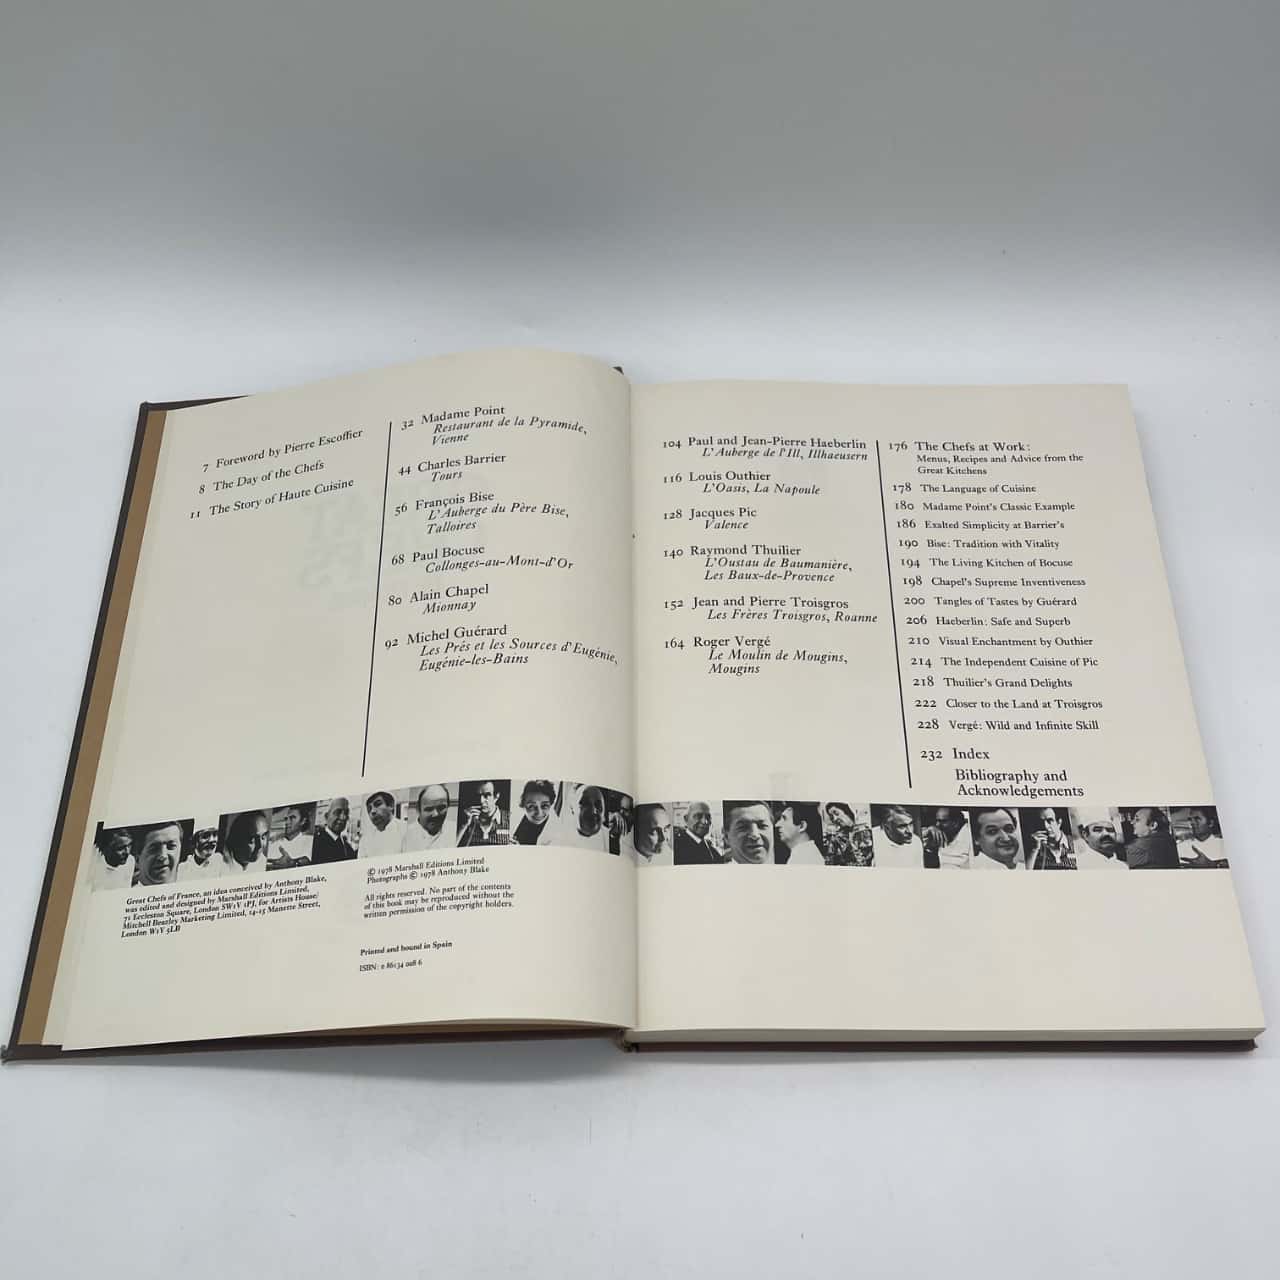 7 Foreword by Pierre Escoffier
8 The Day of the Chefs
11 The Story of Haute Cuisine
32 Madame Point
Restaurant de la Pyramide,
Vienne
44 Charles Barrier
Tours
56 François Bise
L'Auberge du Père Bise,
Talloires
68 Paul Bocuse
Collonges-au-Mont-d'Or
80 Alain Chapel
Mionnay
92 Michel Guérard
Les Prés et les Sources d'Eugénie,
Eugénie-les-Bains
Great Chefs of France, an idea conceived by Anthony Blake,
was edited and designed by Marshall Editions Limited,
71 Eccleston Square, London SW1V 1PJ, for Artists House/
Mitchell Beazley Marketing Limited, 14-15 Manette Street,
London W1V 5LB
© 1978 Marshall Editions Limited
Photographs © 1978 Anthony Blake
All rights reserved. No part of the contents
of this book may be reproduced without the
written permission of the copyright holders.
Printed and bound in Spain
ISBN: 0 86134 008 6
104 Paul and Jean-Pierre Haeberlin
L'Auberge de l'Ill, Illhaeusern
116 Louis Outhier
L'Oasis, La Napoule
128 Jacques Pic
Valence
140 Raymond Thuilier
L'Oustau de Baumanière,
Les Baux-de-Provence
152 Jean and Pierre Troisgros
Les Frères Troisgros, Roanne
164 Roger Vergé
Le Moulin de Mougins,
Mougins
176 The Chefs at Work:
Menus, Recipes and Advice from the
Great Kitchens
178 The Language of Cuisine
180 Madame Point's Classic Example
186 Exalted Simplicity at Barrier's
190 Bise: Tradition with Vitality
194 The Living Kitchen of Bocuse
198 Chapel's Supreme Inventiveness
200 Tangles of Tastes by Guérard
206 Haeberlin: Safe and Superb
210 Visual Enchantment by Outhier
214 The Independent Cuisine of Pic
218 Thuilier's Grand Delights
222 Closer to the Land at Troisgros
228 Vergé: Wild and Infinite Skill
232 Index
Bibliography and
Acknowledgements